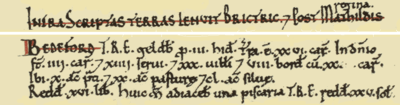 regina.
INFRA SCRIPTAS TERRAS TENUIT BRICTRIC. 7 post MATHILDIS
BEDEFORD T.R.E. geldb p. III. hid. Tra. ē. XXVI. car. In dnio
st. IIII. car. 7 XIIII. serui. 7 XXX. uilli 7 VIII. bord cu. XX. car.
Ibi. X. ac pti. 7 XX. ac pasturæ 7 CL. ac siluæ.
Redd. XVI. lib. Huic adiacet una piscaria T.R.E. redd. XXV. sol.